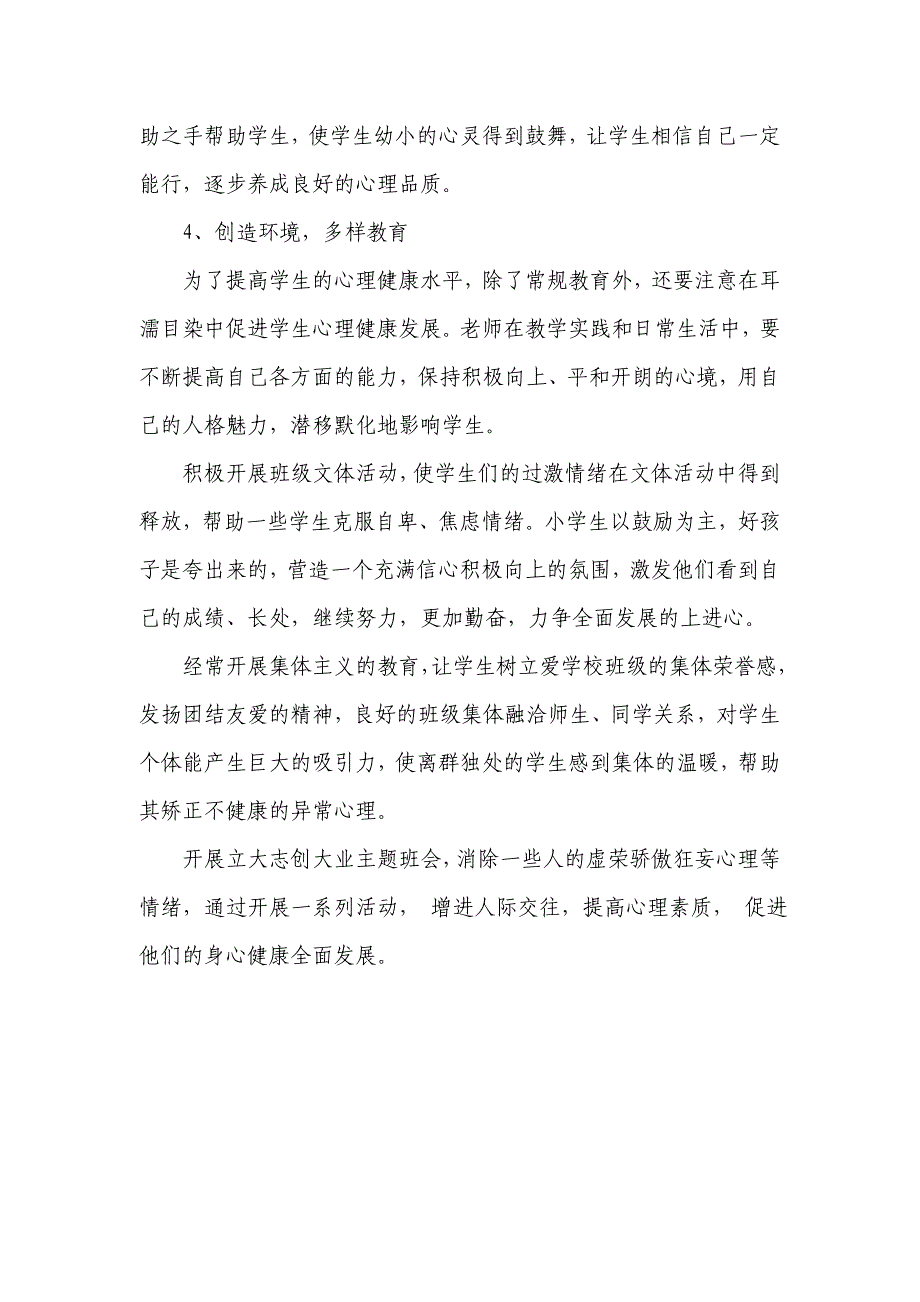 助之手帮助学生，使学生幼小的心灵得到鼓舞，让学生相信自己一定
能行，逐步养成良好的心理品质。
4、创造环境，多样教育
为了提高学生的心理健康水平，除了常规教育外，还要注意在耳
濡目染中促进学生心理健康发展。老师在教学实践和日常生活中，要
不断提高自己各方面的能力，保持积极向上、平和开朗的心境，用自
己的人格魅力，潜移默化地影响学生。
积极开展班级文体活动，使学生们的过激情绪在文体活动中得到
释放，帮助一些学生克服自卑、焦虑情绪。小学生以鼓励为主，好孩
子是夸出来的，营造一个充满信心积极向上的氛围，激发他们看到自
己的成绩、长处，继续努力，更加勤奋，力争全面发展的上进心。
经常开展集体主义的教育，让学生树立爱学校班级的集体荣誉感，
发扬团结友爱的精神，良好的班级集体融洽师生、同学关系，对学生
个体能产生巨大的吸引力，使离群独处的学生感到集体的温暖，帮助
其矫正不健康的异常心理。
开展立大志创大业主题班会，消除一些人的虚荣骄傲狂妄心理等
情绪，通过开展一系列活动， 增进人际交往，提高心理素质， 促进
他们的身心健康全面发展。